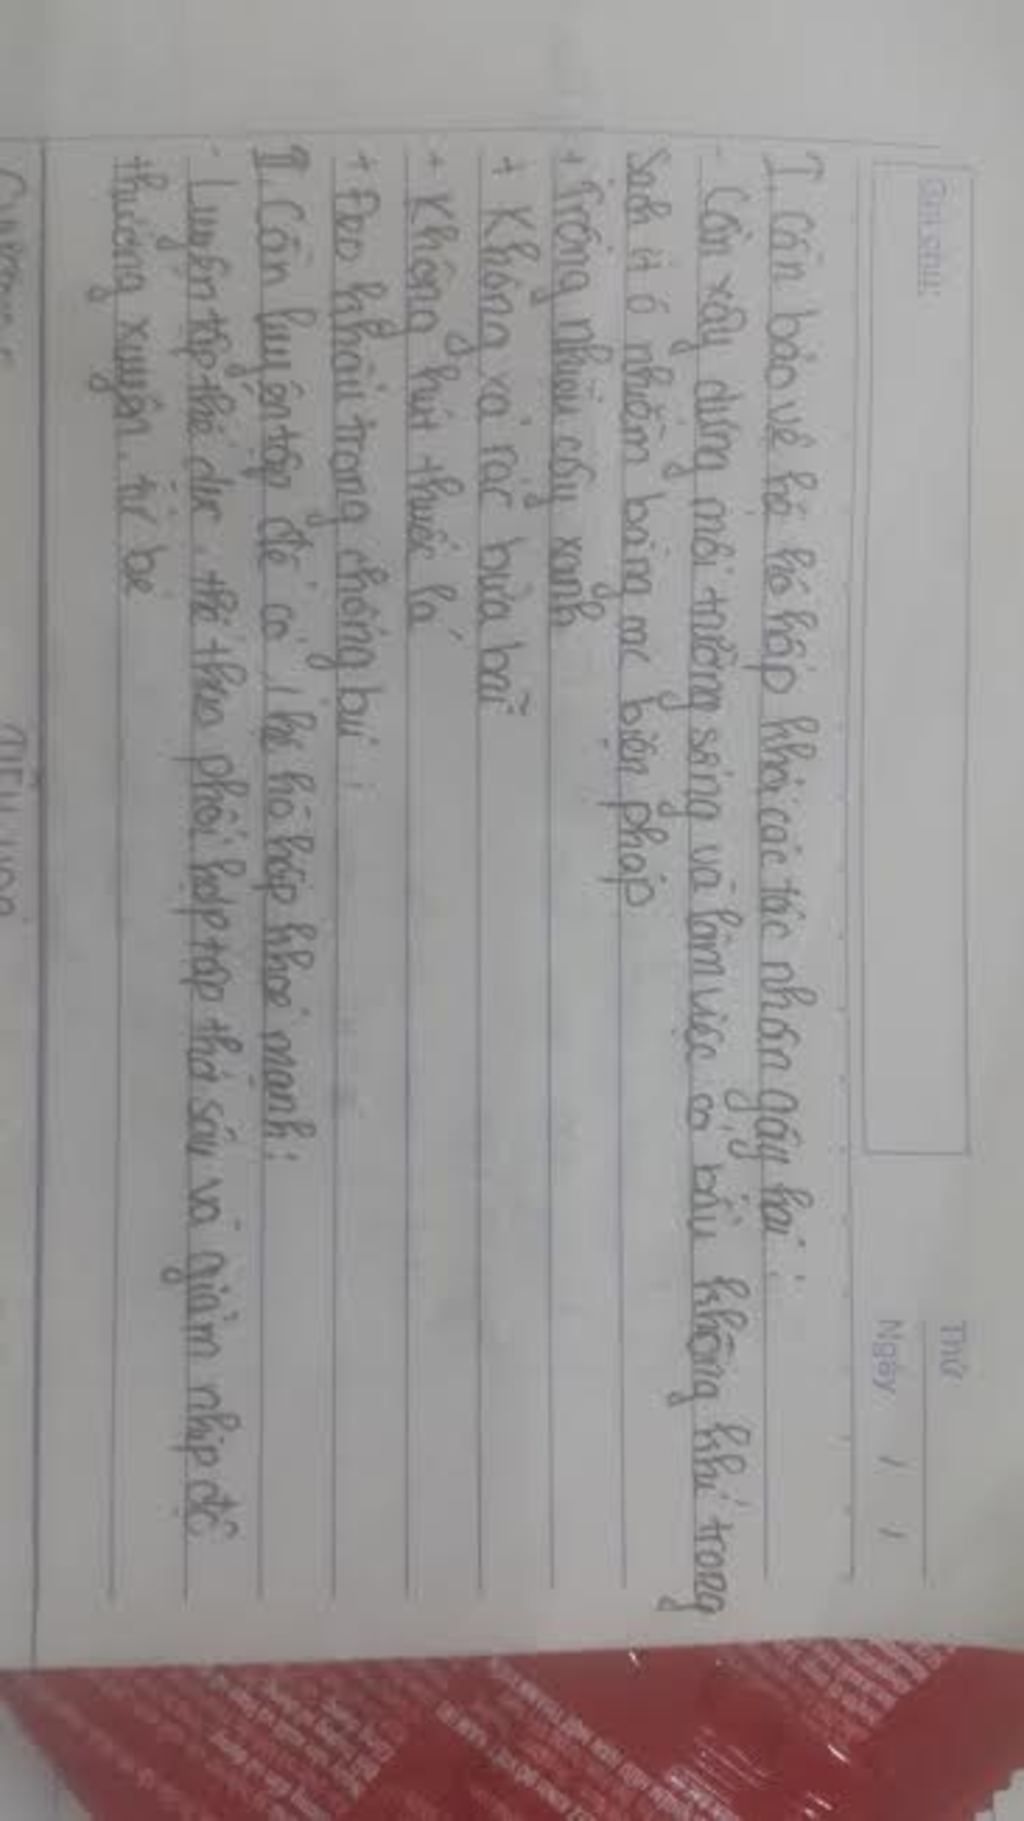 Thứ
Ngày / /
I Cần bảo vệ hệ hô hấp khỏi các tác nhân gây hại :
- Cần xây dựng môi trường sống và làm việc có bầu không khí trong
Sạch ít ô nhiễm bằng mc biện pháp
+ Trồng nhiều cây xanh
+ Không xả rác bừa bãi
+ Không hút thuốc lá
+ Đeo khẩu trang chống bụi
II Cần luyện tập để có 1 hệ hô hấp khoẻ mạnh :
- Luyện tập thể dục, thể thao phối hợp tập thở sâu và giảm nhịp độ
thường xuyên, từ bé